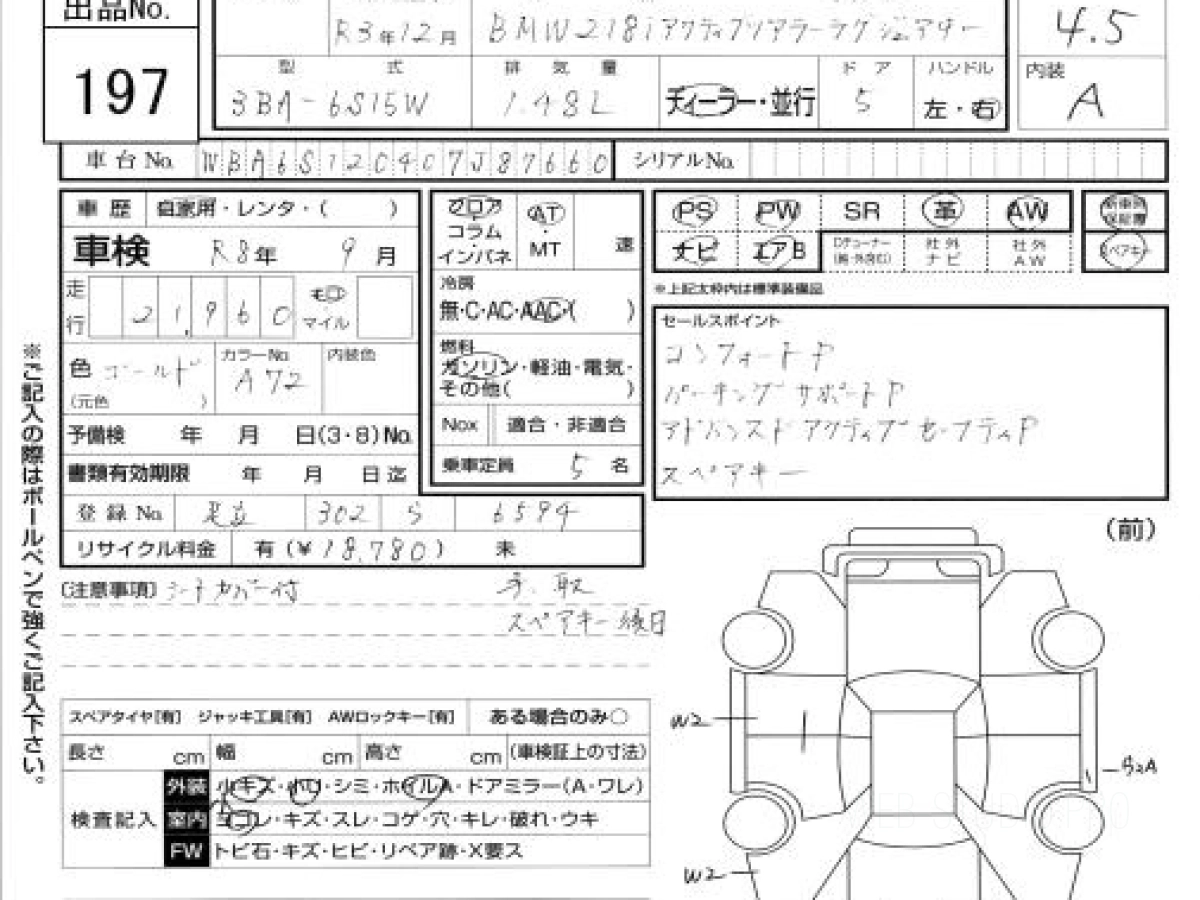 出品No.
197
R3年12月 BMW218iアクティブツアラーラグジュアリー 4.5
型式 排気量 ドア ハンドル 内装
3BA-6S15W 1.48L ディーラー・並行 5 左・右 A
車台No. WBA6S120407J87660 シリアルNo.
車歴 自家用・レンタ・( )
車検 R8年 9月
走行 21,960 キロ マイル
色 ゴールド カラーNo. A72 内装色
(元色 )
予備検 年 月 日(3・8)No.
書類有効期限 年 月 日迄
登録No. 足立 302 ら 6594
リサイクル料金 有(¥18,780) 未
フロア コラム インパネ
AT・MT 速
冷房
無・C・AC・AAC・( )
燃料
ガソリン・軽油・電気・
その他( )
Nox 適合・非適合
乗車定員 5名
PS PW SR 革 AW 新車時保証書
ナビ エアB Dチューナー(純・外含む) 社外ナビ 社外AW スペアキー
※上記太枠内は標準装備品
セールスポイント
コンフォートP
パーキングサポートP
アドバンスドアクティブセーフティP
スペアキー
[注意事項] シートカバー付 手、取
スペアキー後日
※ご記入の際はボールペンで強くご記入下さい。
(前)
スペアタイヤ[有] ジャッキ工具[有] AWロックキー[有] ある場合のみ○
長さ cm 幅 cm 高さ cm (車検証上の寸法)
検査記入
外装 小キズ・小凹・シミ・ホイルA・ドアミラー(A・ワレ)
室内 ヨゴレ・キズ・スレ・コゲ・穴・キレ・破れ・ウキ
FW トビ石・キズ・ヒビ・リペア跡・X要ス
W2
S2A
W2